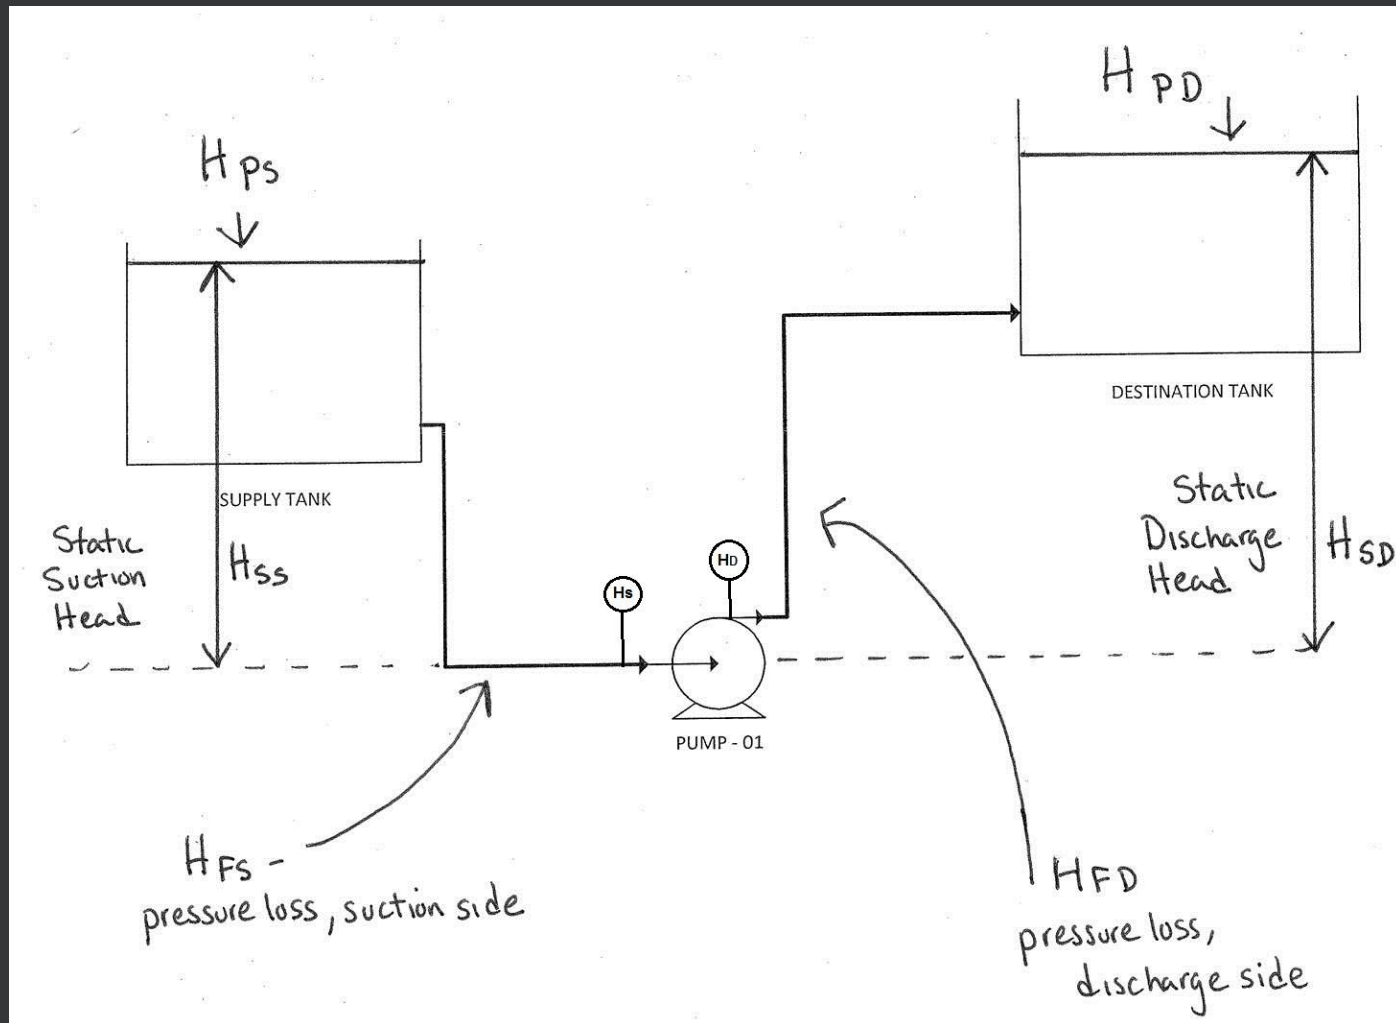 H PD
H PS
DESTINATION TANK
SUPPLY TANK
Static
Suction
Head
HSS
Static
Discharge
Head
HSD
Hs
HD
PUMP - 01
HFS -
pressure loss, suction side
HFD
pressure loss,
discharge side